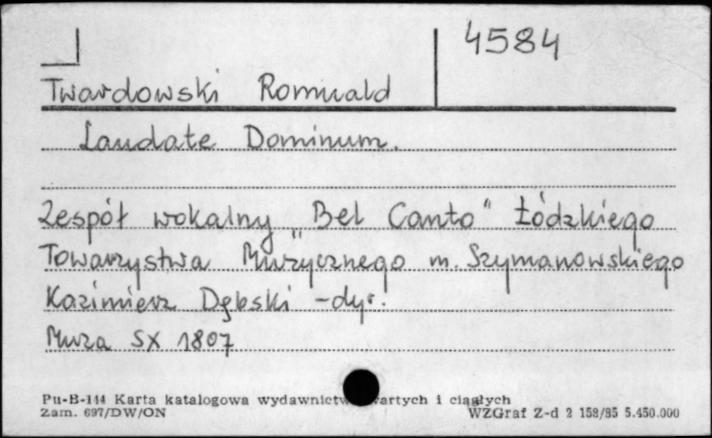 4584
Twardowski Romuald
Laudate Dominum.
Zespół wokalny "Bel Canto" Łódzkiego
Towarzystwa Muzycznego m. Szymanowskiego
Kazimierz Dębski - dyr.
Muza SX 1807
Pu-B-144 Karta katalogowa wydawnictw zwartych i ciągłych
Zam. 697/DW/ON WZGraf Z-d 2 158/85 5.450.000